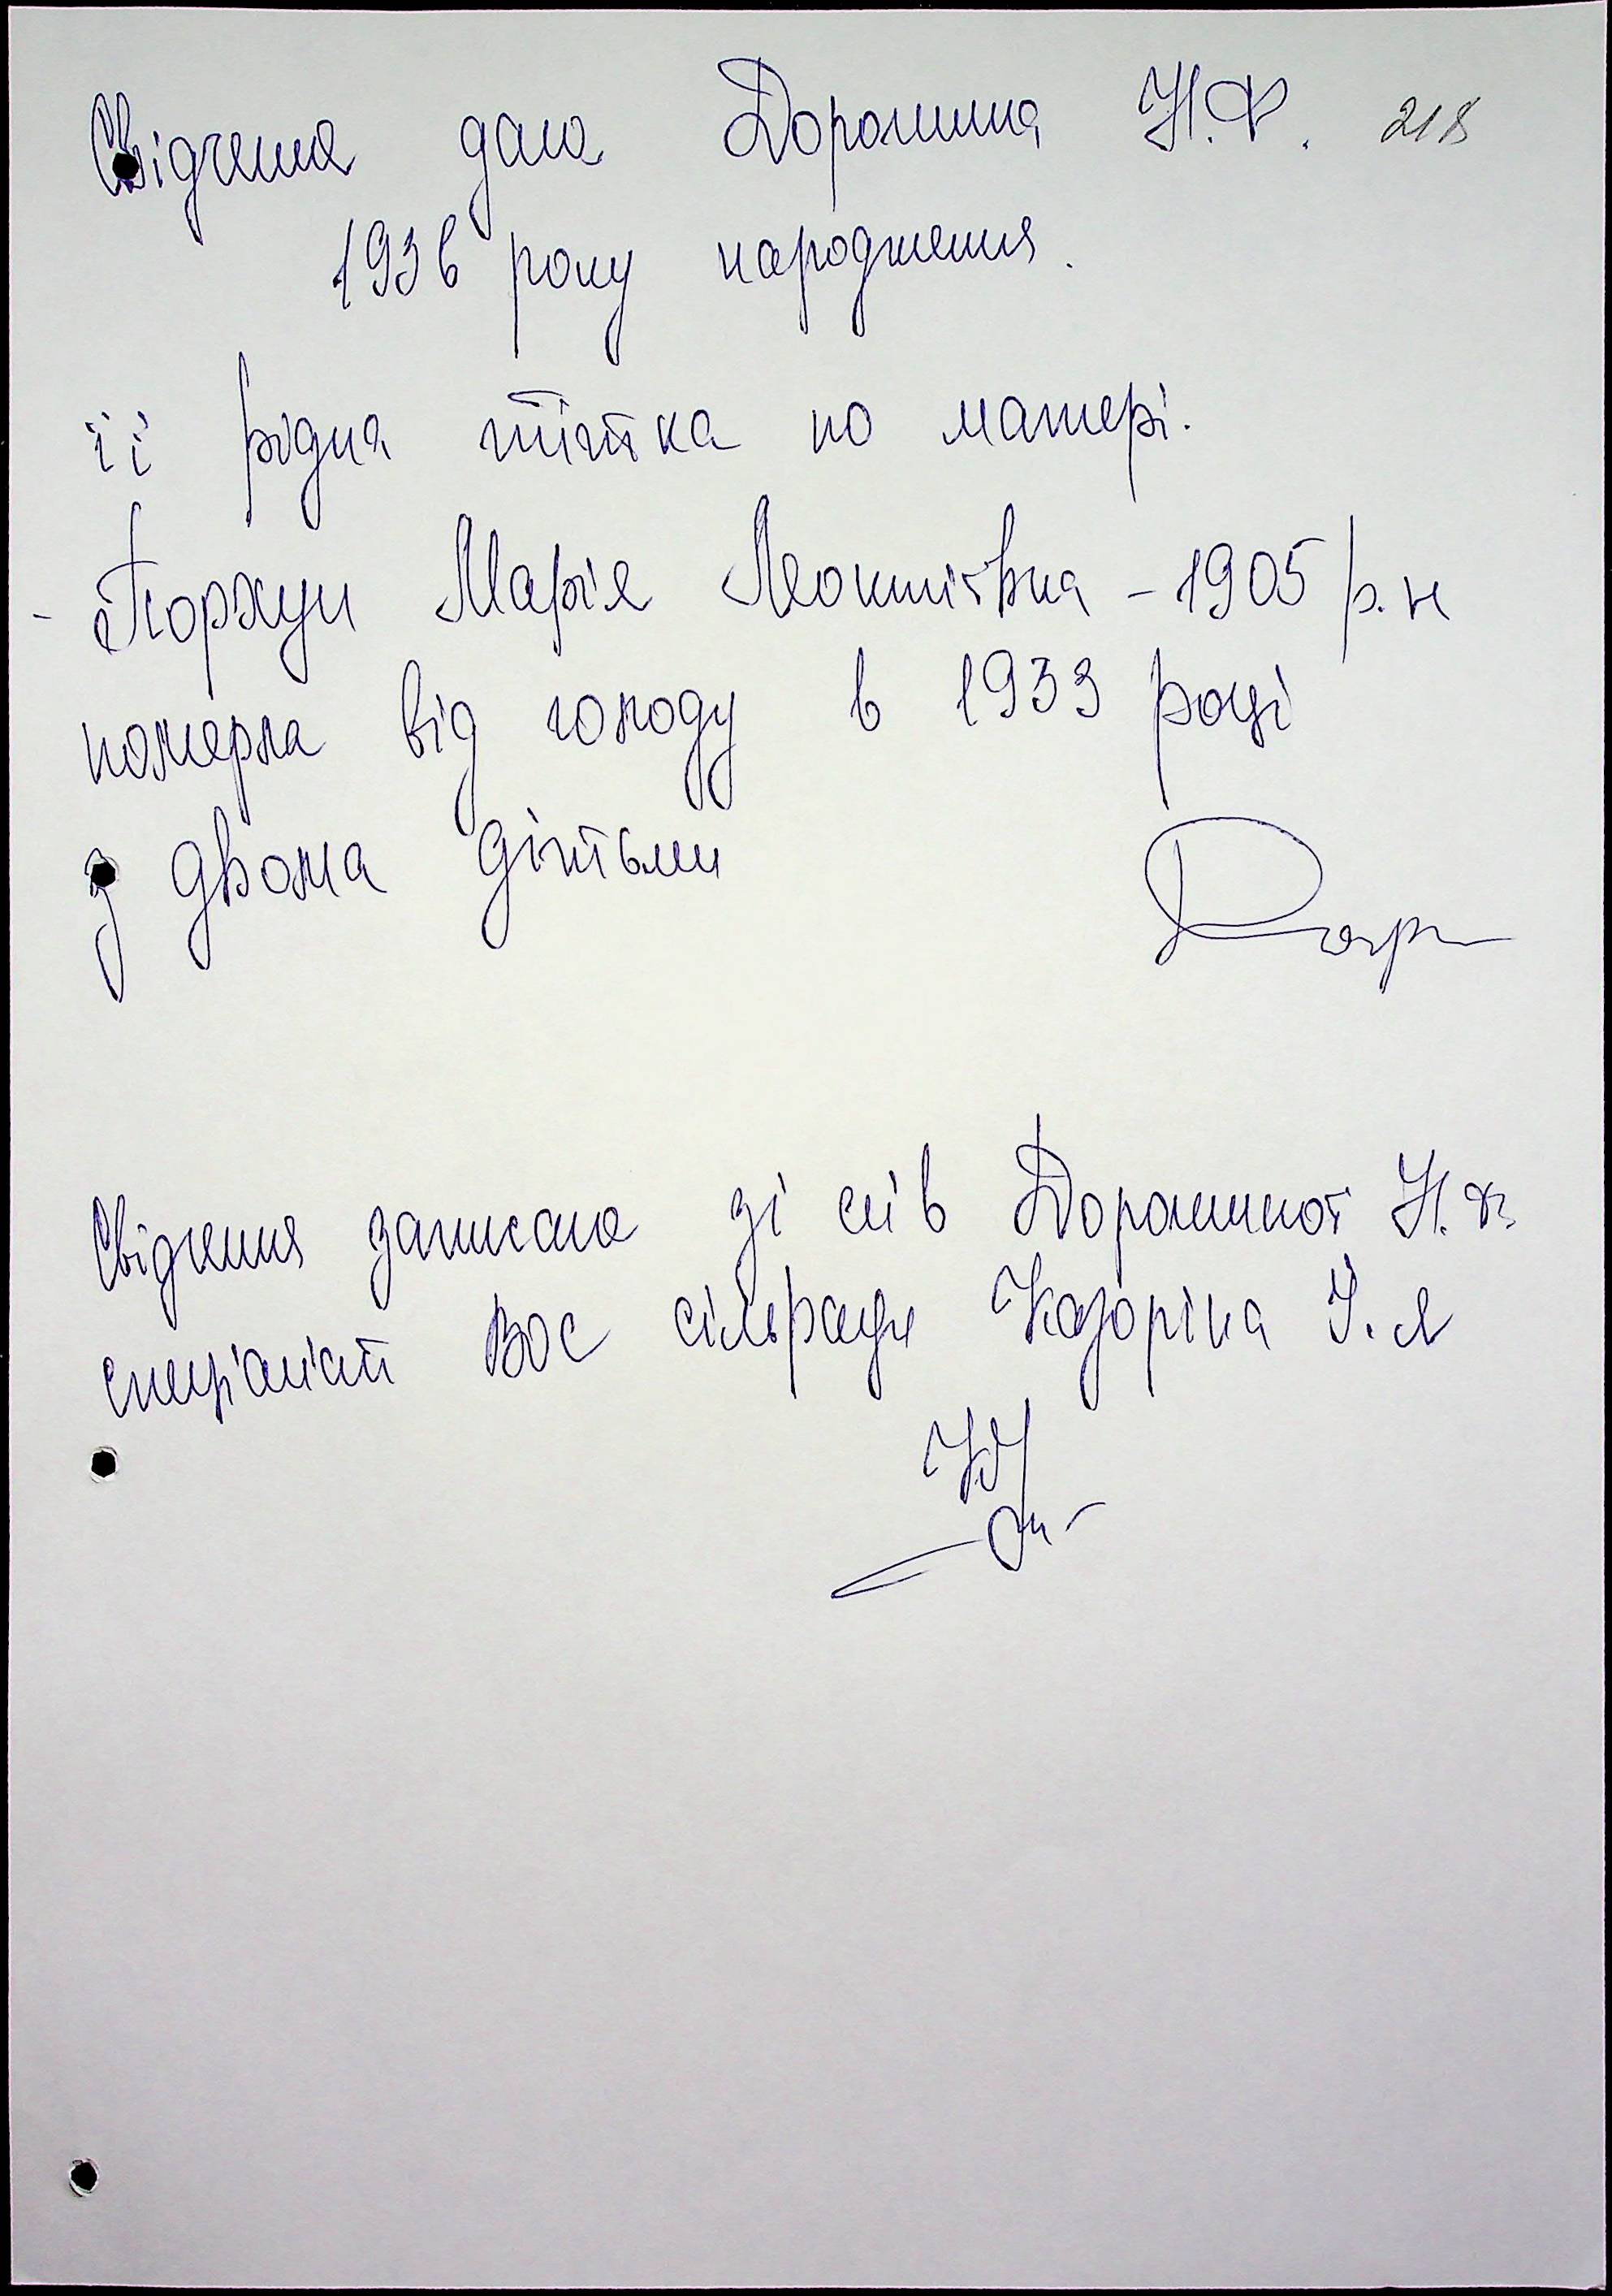 Свідчення дала Дорошина Н.Ф. 218
1936 року народження.
її рідна тітка по матері.
- Порхун Марія Леонтіївна - 1905 р. н
померла від голоду в 1933 році
з двома дітьми
Свідчення записала зі слів Дорошиної Н.Ф.
спеціаліст ВОС сільради Казоріна І. Л